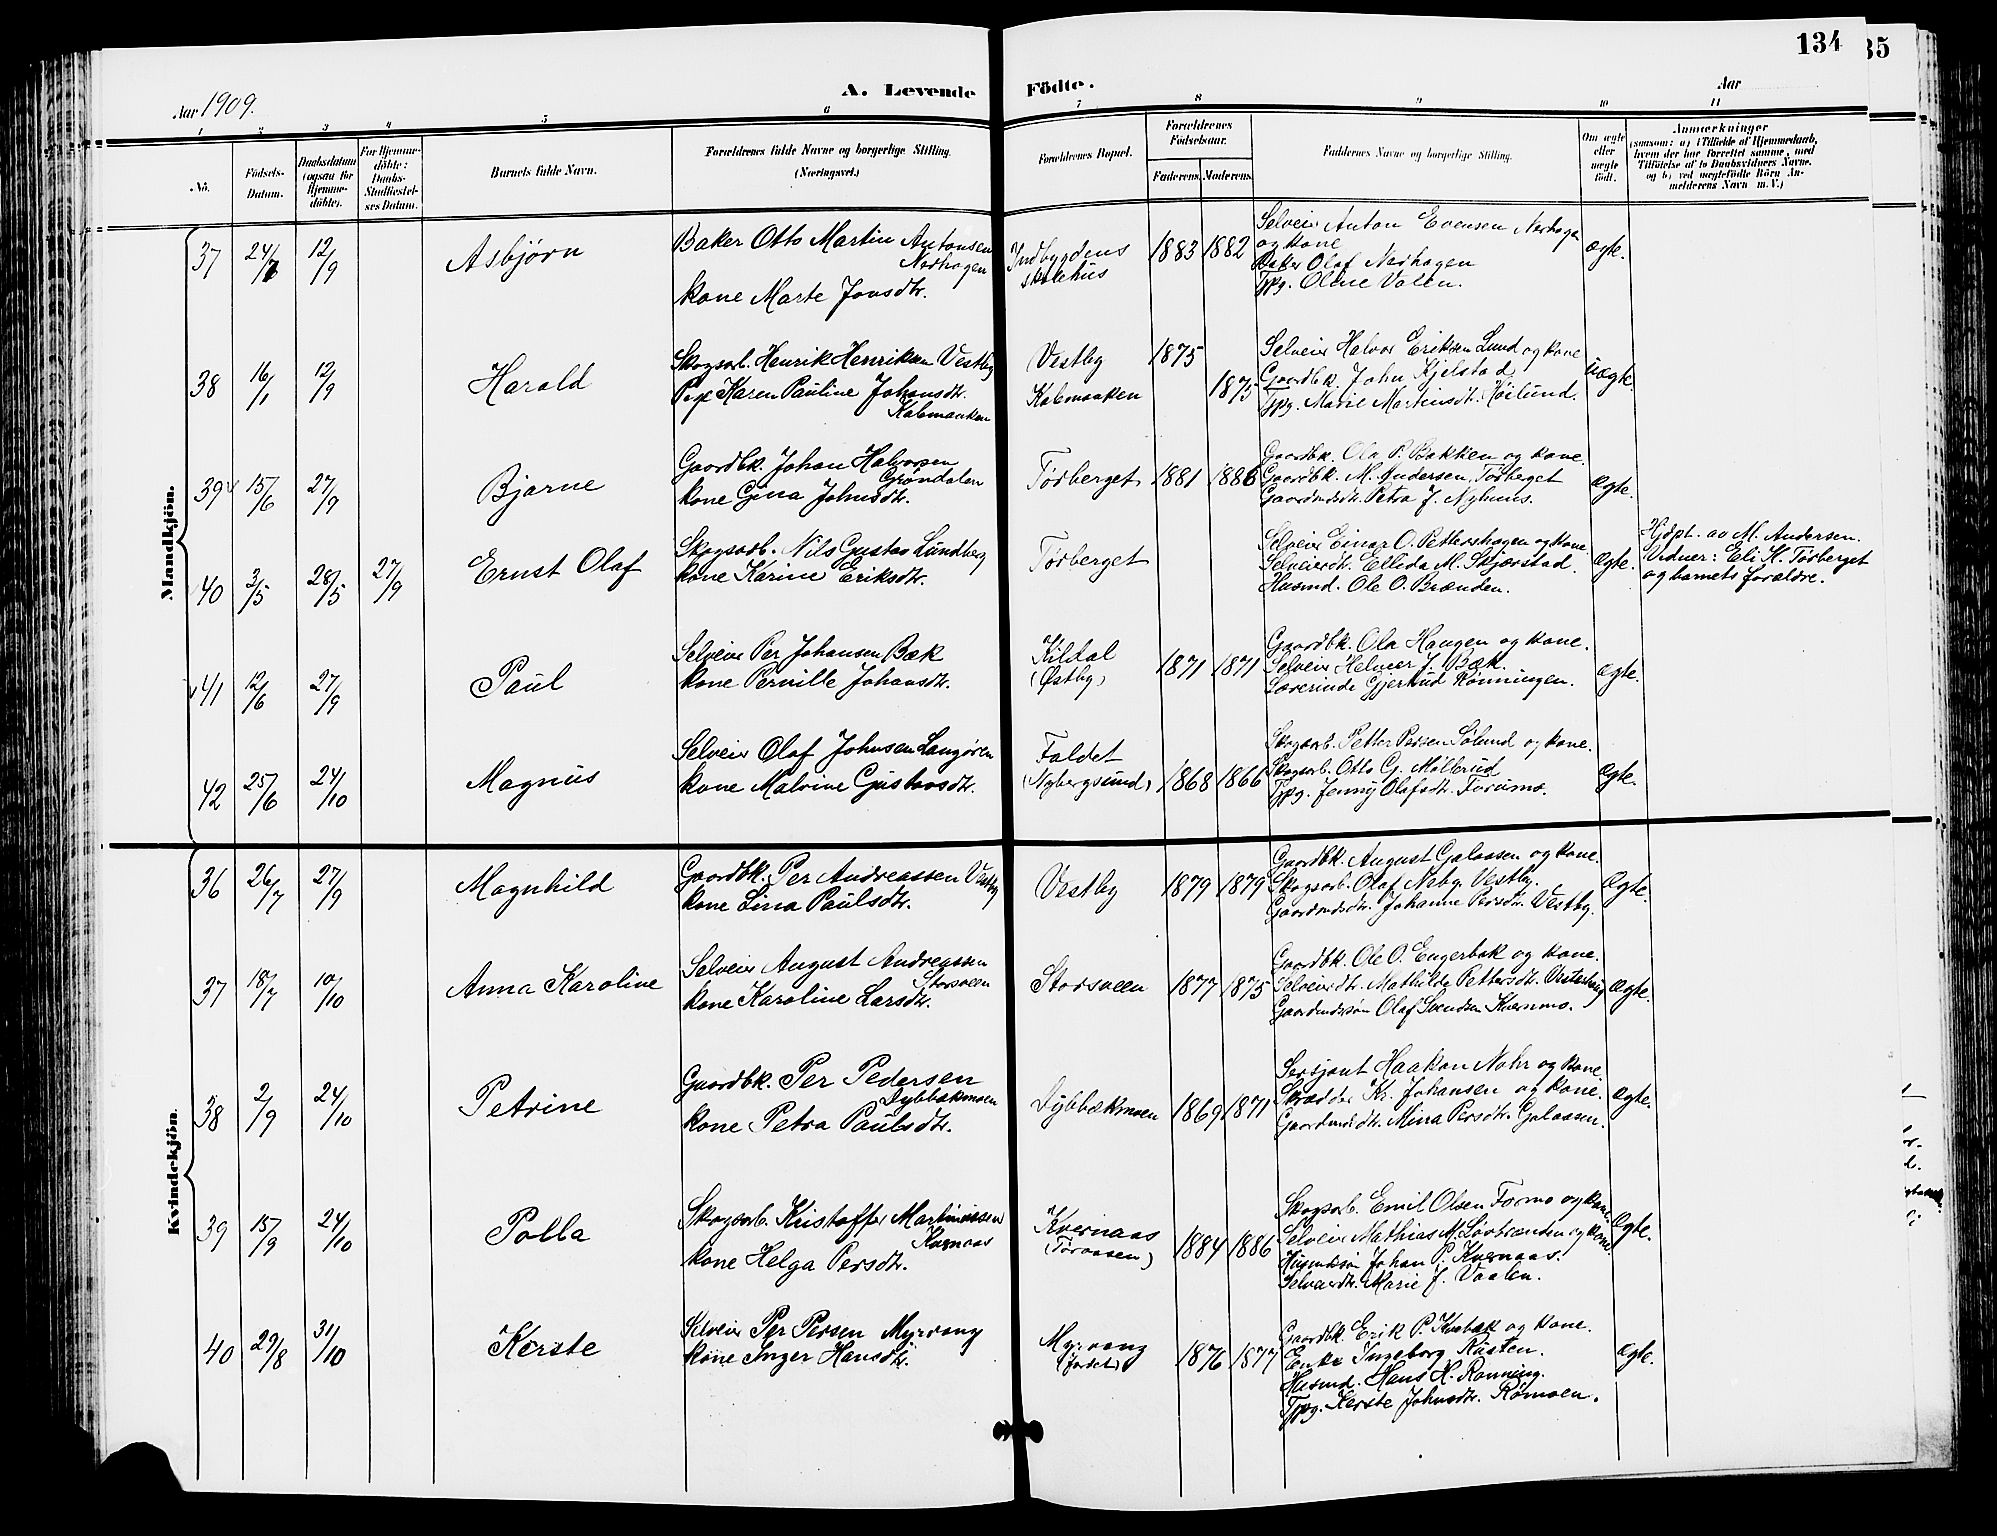 134
35
Aar 1909.
A. Levende Fødte.
Aar
1 2 3 4 5 6 7 8 9 10 11
No.
Fødsels-Datum.
Daabsdatum (ogsaa for Hjemme-døbte).
For Hjemme-døbte: Daabs-Stadfæstel-ses Datum.
Barnets fulde Navn.
Forældrenes fulde Navne og borgerlige Stilling. (Næringsvei.)
Forældrenes Bopæl.
Forældrenes Fødselsaar.
Faderens. Moderens.
Faddernes Navne og borgerlige Stilling.
Om ægte eller uægte født.
Anmærkninger (saasom: a) i Tilfælde af Hjemmedaab, hvem der har forrettet samme, med Tilføielse af to Daabsvidners Navne. og b) ved uægtefødte Børn An-melderens Navn m. V.)
Mandkjøn.
37 24/7 12/9 Asbjørn
Baker Otto Martin Antonsen
Nerhagen
kone Marte Jonsdtr.
Indbygdens
skolehus
1883 1882
Selveier Anton Evensen Nerhagen
og kone
Baker Olaf Nerhagen
Tpg. Oline Valen.
ægte.
38 16/1 12/9 Harald
Skogsarb. Henrik Henriksen Vestby
Pige Karen Pauline Johansdtr.
Kalvmaaken
Vestby 1875
1875
Selveier Halvor Eriksen Lund og kone
Gaardbk. John Kjelstad
Tpg. Marie Martinsdtr. Høilund.
uægte
39 15/6 27/9 Bjarne
Gaardbk. Johan Halvorsen
Grøndalen
kone Gina Johnsdtr.
Tørberget 1881 1886
Gaardbk. Ola P. Bakken og kone.
Gaardbk. M. Andersen, Tørberget
Gaardmdsdtr. Petra J. Nyhuus.
ægte.
40 3/5 28/5 27/9 Ernst Olaf
Skogsarb. Nils Gustav Lundberg
kone Karine Eriksdtr.
Tørberget
Selveier Einar O. Pettershagen og kone.
Selveierdtr. Ellida M. Skjærstad.
Husmd. Ole O. Brænden.
Ægte.
Hjdpt. av M. Andersen.
Vidner: Eli H. Tørberget
og barnets forældre.
41 12/6 27/9 Paul
Selveier Per Johansen Bæk
kone Pernille Johansdtr.
Kildal
(Østby)
1871 1871
Gaardbk. Ola Haugen og kone.
Selveier Halvor J. Bæk.
Lærerinde Gjertrud Rønningen.
Ægte.
42 25/6 24/10 Magnus
Selveier Olaf Johnsen Langøren
kone Malvine Gustavsdtr.
Faldet
(Nybergsund)
1868 1866
Skogsarb. Petter Persen Sølund og kone.
Skogsarb. Otto G. Møllerud
Tpg. Jenny Olafsdtr. Furumo.
Ægte.
Kvindekjøn.
36 26/7 27/9 Magnhild
Gaardbk. Per Andreassen Vestby
kone Lina Paulsdtr.
Vestby 1879 1879
Gaardbk. August Galaasen og kone.
Skogsarb. Olaf Neby Vestby.
Gaardmdsdtr. Johanne Persdtr. Vestby.
Ægte.
37 18/7 10/10 Anna Karoline
Selveier August Andreassen
Storsveen
kone Karoline Larsdtr.
Storsveen 1877 1875
Gaardbk. Ole O. Engerbak og kone.
Selveierdtr. Mathilde Pettersdtr.
Gaardmdssøn Olaf Svendsen Kværnmo.
Ægte.
38 2/9 24/10 Petrine
Gaardbk. Per Pedersen
Dybbækmoen
kone Petra Paulsdtr.
Dybbækmoen 1869 1871
Sersjant Haakon Nohr og kone
Skrædder Kr. Johansen og kone.
Gaardmdsdtr. Mina Persdtr. Galaasen.
Ægte.
39 15/9 24/10 Palla
Skogsarb. Kristoffer Martinussen
Kvernaas
kone Helga Persdtr.
Kvernaas
(Søraasen)
1884 1886
Skogsarb. Emil Olsen Formo og kone.
Selveier Mathias M. Løvbrænden og kone.
Husmdssøn Johan P. Kvernaas.
Selveierdtr. Marie J. Vaalen.
Ægte.
40 29/8 31/10 Kerste
Selveier Per Persen Myrvang
kone Inger Hansdtr.
Myrvang
(Jordet)
1876 1877
Gaardbk. Erik P. Kvebæk og kone.
Enke Ingeborg Rusten.
Husmd. Hans H. Rønning.
Tpg. Kerste Johnsdtr. Rømoen.
ægte.